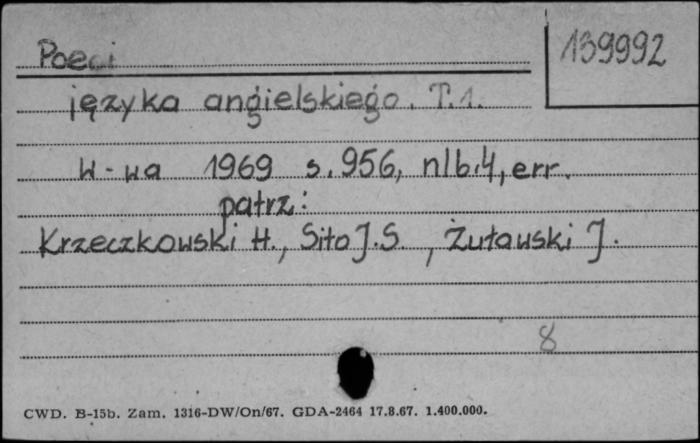 Poeci
139992
języka angielskiego. T.1.
W-wa 1969 s. 956, nlb. 4, err.
patrz:
Krzeczkowski H., Sito J.S., Żuławski J.
8
CWD. B-15b. Zam. 1316-DW/On/67. GDA-2464 17.8.67. 1.400.000.